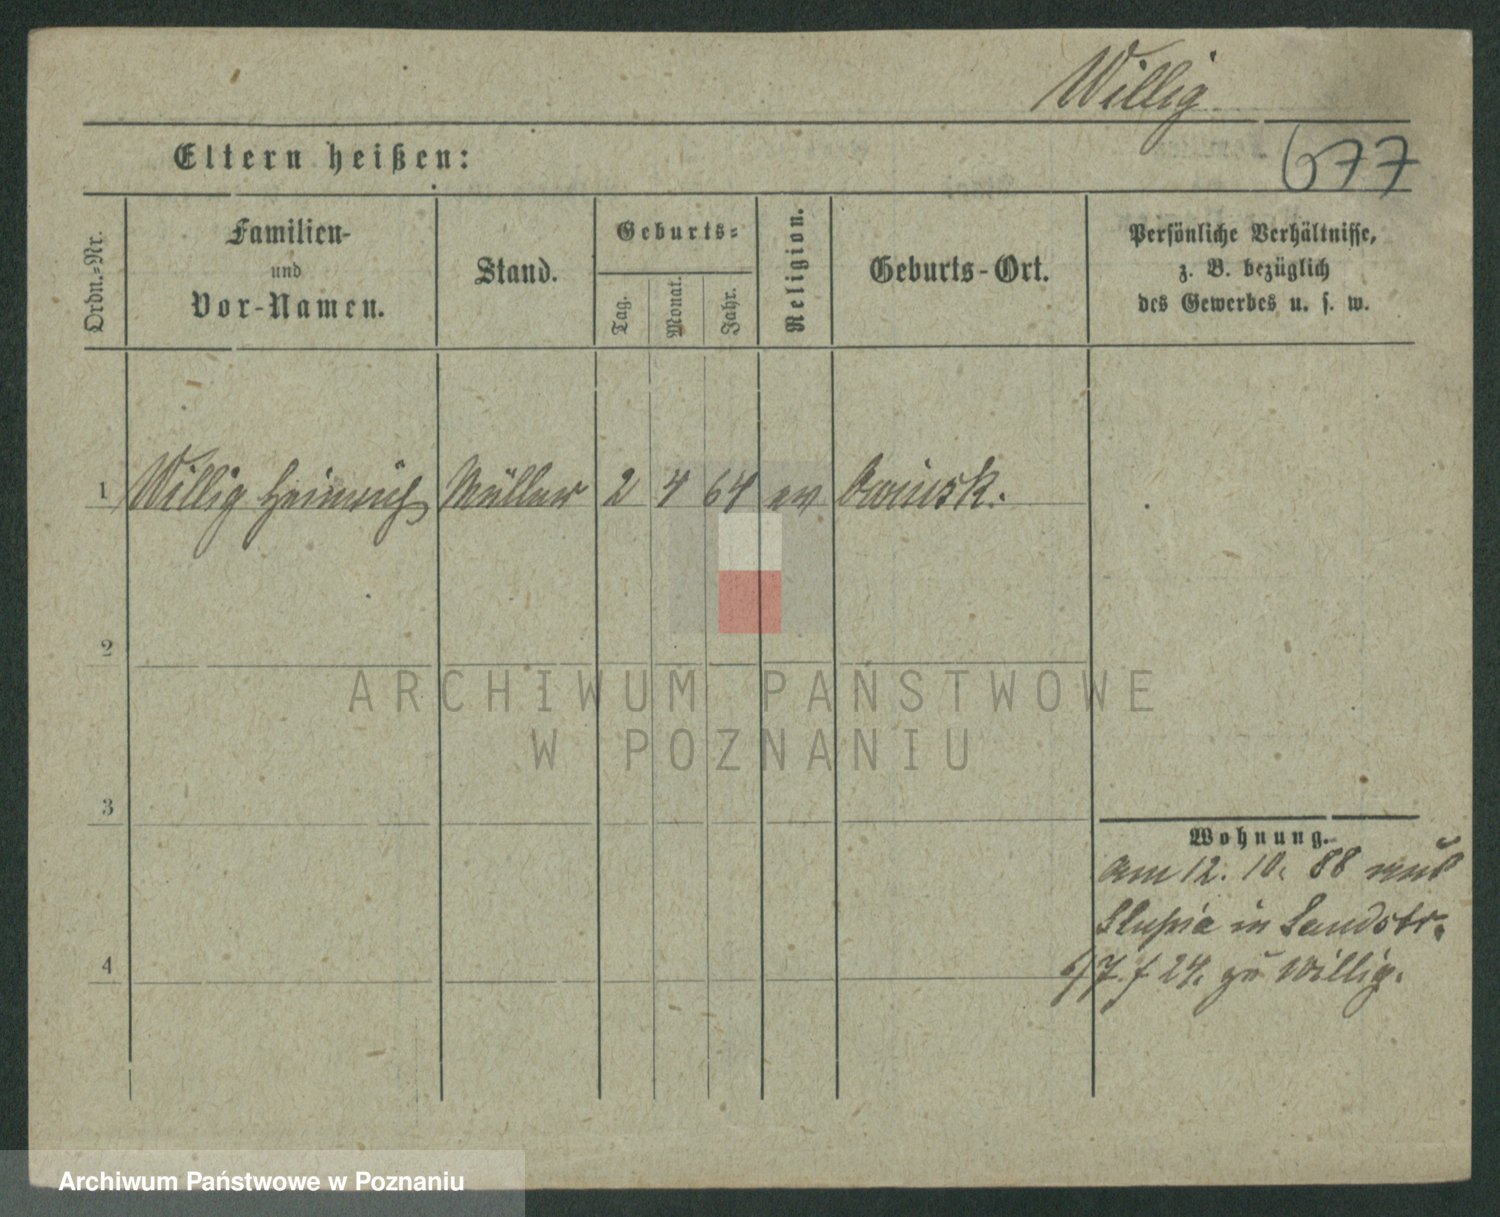 Willig
677
Eltern heißen:
Ordn.=Nr.
Familien-
und
Vor-Namen.
Stand.
Geburts=
Tag.
Monat.
Jahr.
Religion.
Geburts-Ort.
Persönliche Verhältnisse,
z. B. bezüglich
des Gewerbes u. s. w.
1 Willig Heinrich Müller 2 4 64 ev Owinsk.
2
3
4
Wohnung.
am 12. 10. 88 aus
Slupia in Landstr.
24. zu Willig.
ARCHIWUM PAŃSTWOWE
W POZNANIU
Archiwum Państwowe w Poznaniu